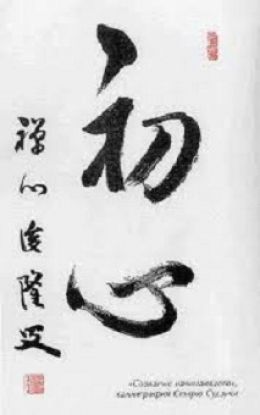 初心
禅心 俊隆書
«Сознание начинающего»,
каллиграфия Сюнрю Судзуки